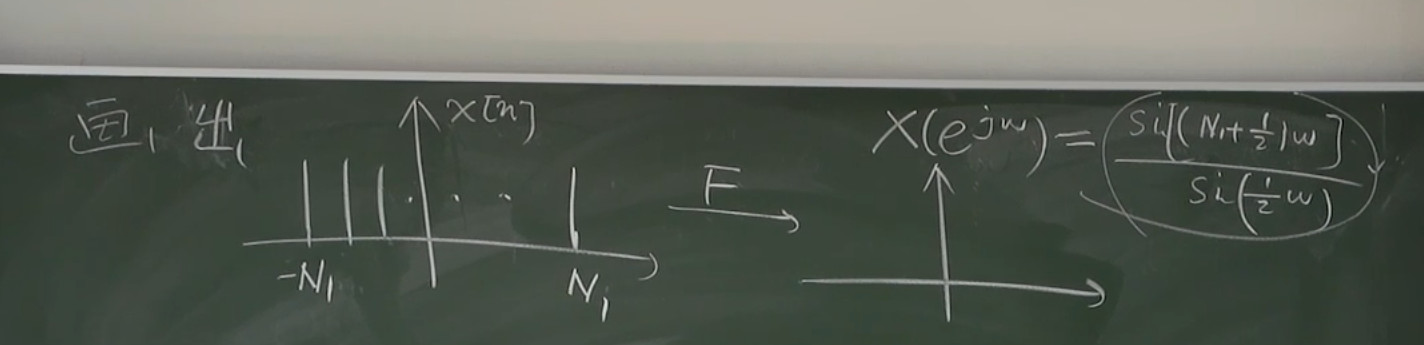 画出
x[n]
-N₁
N₁
F
X(e^{jω}) = Sin[(N₁+½)ω] / Sin(½ω)